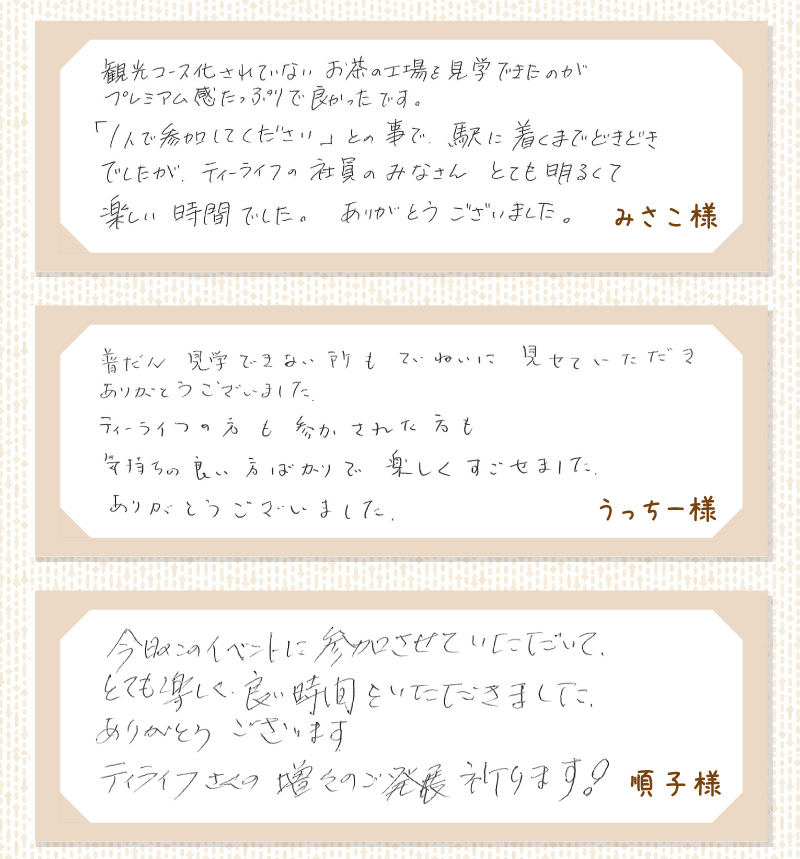 観光コース化されていない お茶の工場を見学できたのが
プレミアム感たっぷりで良かったです。
「1人で参加してください」との事で、駅に着くまでどきどき
でしたが、ティーライフの社員のみなさん とても明るくて
楽しい時間でした。 ありがとうございました。
みさこ様
普だん 見学できない所も ていねいに 見せていただき
ありがとうございました。
ティーライフの方も 参加された方も
気持ちの良い方ばかりで 楽しくすごせました。
ありがとうございました。
うっちー様
今日はこのイベントに参加させていただいて、
とても楽しく、良い時間をいただきました。
ありがとうございます
ティライフさんの増々のご発展祈ります!
順子様